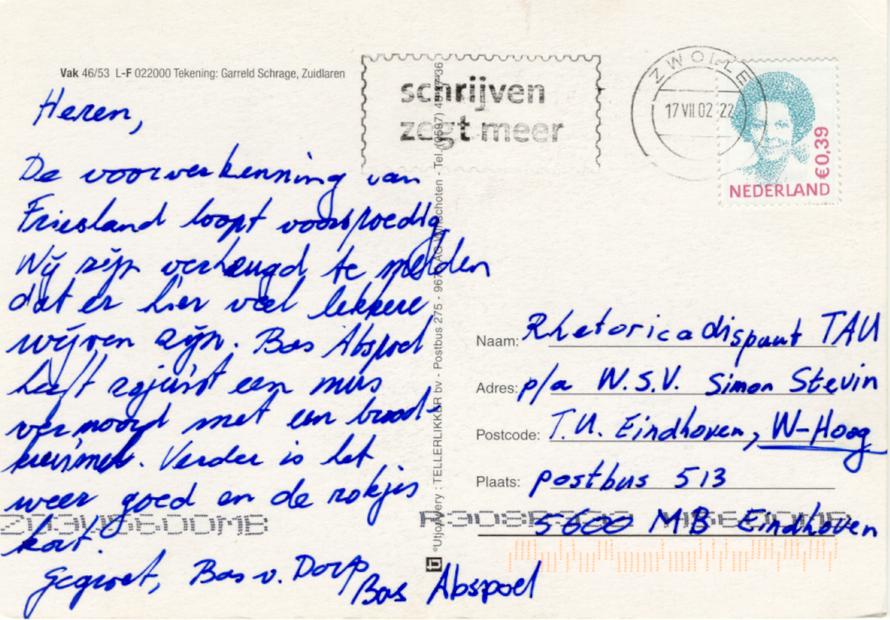 Vak 46/53 L-F 022000 Tekening: Garreld Schrage, Zuidlaren
schrijven
zegt meer
ZWOLLE
17 VII.02 22
€0,39
NEDERLAND
Heren,
De voorverkenning van
Friesland loopt voorspoedig
Wij zijn verheugd te melden
dat er hier veel lekkere
wijven zijn. Bas Abspoel
heeft zojuist een mus
vermoord met een brood-
kruimel. Verder is het
weer goed en de rokjes
kort.
Gegroet, Bas v. Dorp
Bas Abspoel
Uitg. TELLERLIKKER bv - Postbus 275 -
Naam: Rhetoricadispuut TAU
Adres: p/a W.S.V. Simon Stevin
Postcode: T.U. Eindhoven, W-Hoog
Plaats: postbus 513
5600 MB Eindhoven